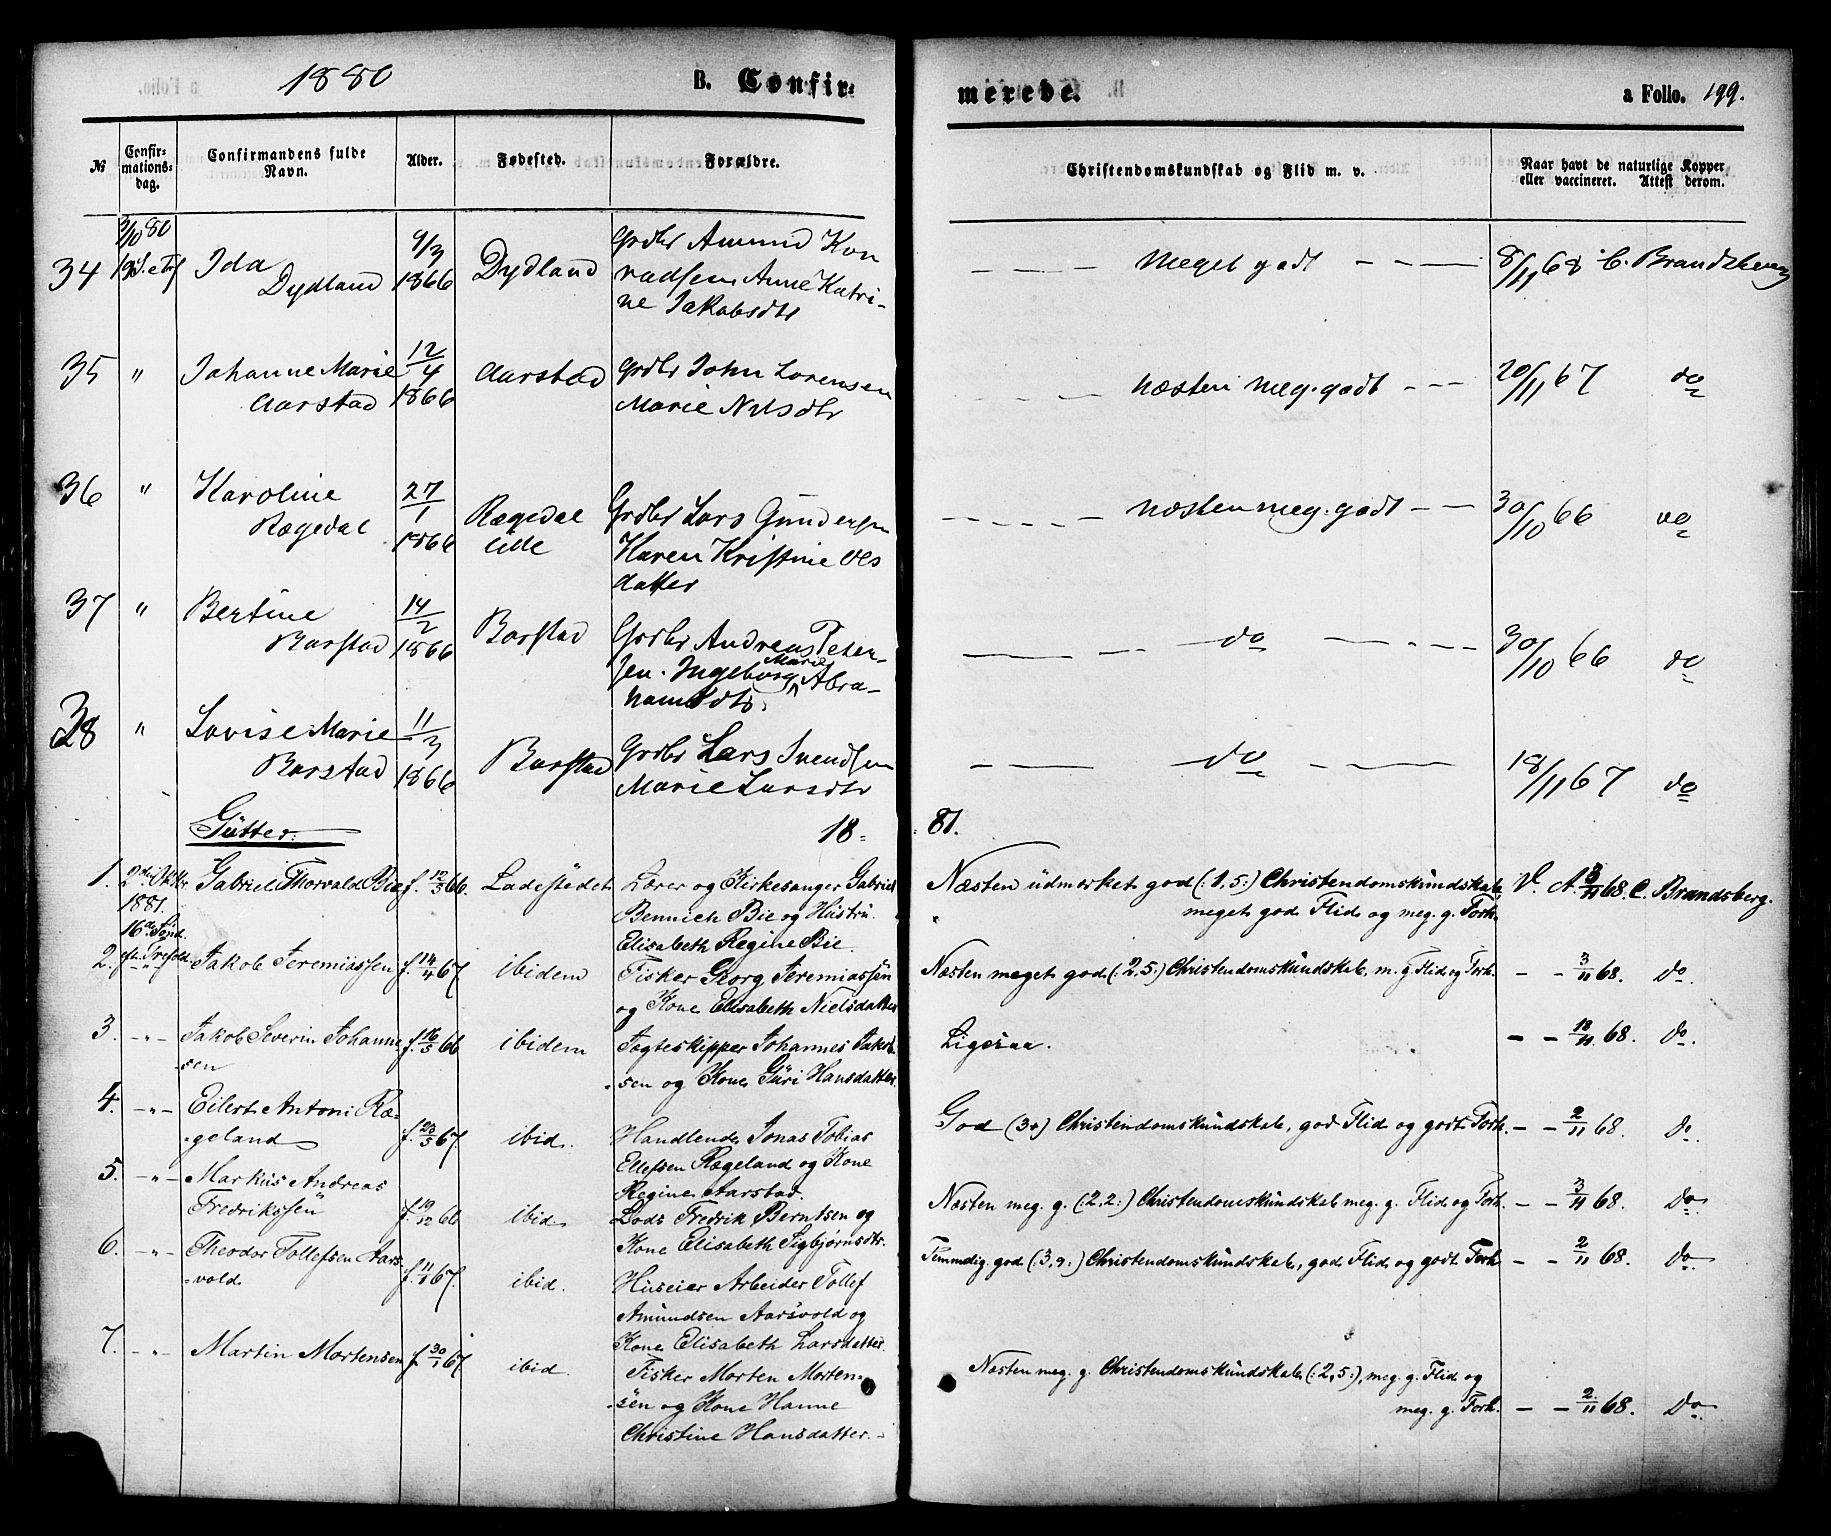 1880 B. Confir=
merede. a Folio. 199.
№ Confir=mations=dag. Confirmandens fulde Navn. Alder. Fødested. Forældre. Christendomskundskab og Flid m. v. Naar havt de naturlige Kopper eller vaccineret. Attest derom.
3/10 80
34 Ida Dydland 9/3 1866 Dydland Grdbr Amund Kon
radsen Anne Katri-
ne Jakobsdtr
Meget godt 8/11 68 C. Brandsberg
35 " Johanne Marie Aarstad 12/4 1866 Aarstad Grdbr John Lorensen
Marie Nilsdtr
næsten meg. godt 20/11 67 do
36 " Karoline Rægedal 27/1 1866 Rægedal lille Grdbr Lars Gundersen
Karen Kristine Ols
datter
næsten meg. godt 30/10 66 do
37 " Bertine Barstad 14/2 1866 Barstad Grdbr Andreas Peter-
sen. Ingeborg Marie Abra-
hamsdtr.
do 30/10 66 do
38 " Lovise Marie Barstad 11/3 1866 Barstad Grdbr Lars Svendsen
Marie Larsdtr
do 18/11 67 do
Gutter: 18= 81.
1. 1881. 16de Sønd. eft. Trefold. Gabriel Thorvald Bie f. 12/5 66. Ladestedet Lærer og Kirkesanger Gabriel
Bennich Bie og Hustru
Elisabeth Regine Bie.
Næsten udmærket god (: 1,5 :) Christendomskundskab,
meget god Flid og meg. g. Forh.
V. A. 3/11 68. C. Brandsberg.
2. -"- Jakob Jeremiassen f. 14/4 67 ibidem Fisker Georg Jeremiassen
og Kone Elisabeth Nielsdatter
Næsten meget god (: 2,5 :) Christendomskundskab, m. g Flid og Forh. - - 3/11 68. Do.
3. -"- Jakob Severin Johanne
-sen f. 16/5 66 ibidem Jagteskipper Johannes Jakob
-sen og Kone Guri Hansdatter.
Ligesaa. - - 18/11 68. Do.
4. -"- Eilert Antoni Ræ-
-geland f. 23/5 67. ibid. Handlende Jonas Tobias
Ellefsen Rægeland og Kone
Regine Aarstad.
God (3+) Christendomskundskab, god Flid og godt Forh. - - 2/11 68. Do.
5. -"- Markus Andreas
Fredriksen f. 19/12 66 ibid. Lods Fredrik Berntsen og
Kone Elisabeth Sigbjørnsdtr.
Næsten meg. g. (: 2,2 :) Christendomskundskab meg. g. Flid og Forh. - - 3/11 68. Do
6. -"- Theodor Tollefsen Aars
-vold f. 11/1 67. ibid. Huseier Arbeider Tollef
Amundsen Aarsvold og
Kone Elisabeth Larsdatter.
Temmelig god (: 3,9 :) Christendomskundskab, god Flid og godt Forh. - - 2/11 68. Do
7. -"- Martin Mortensen f. 30/1 67. ibid. Fisker Morten Morten=
-sen og Kone Hanne
Christine Hansdatter.
Næsten meg. g. Christendomskundskab (: 2,5 :), meg. g. Flid og
meg. g. Forh. - - 2/11 68. Do